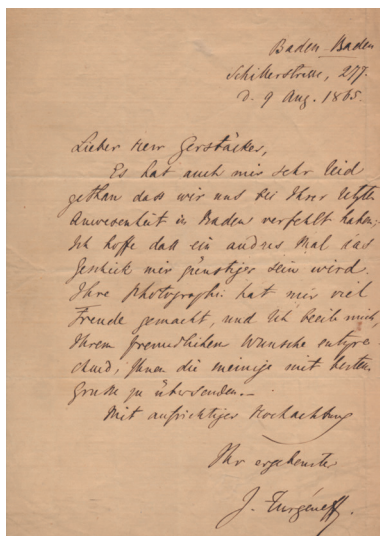 Baden-Baden
Schillerstrasse, 277.
d. 9 Aug. 1865.
Lieber Herr Gerstäcker,
Es hat auch mir sehr leid
gethan dass wir uns bei Ihrer letzten
Anwesenheit in Baden verfehlt haben;
Ich hoffe dass ein andres Mal das
Geschick mir günstiger sein wird.
Ihre Photographie hat mir viel
Freude gemacht, und ich beeile mich,
Ihrem freundlichen Wunsche entspre-
chend, Ihnen die meinige mit besten
Gruss zu übersenden.—
Mit aufrichtiger Hochachtung
Ihr ergebenster
J. Turgéneff.